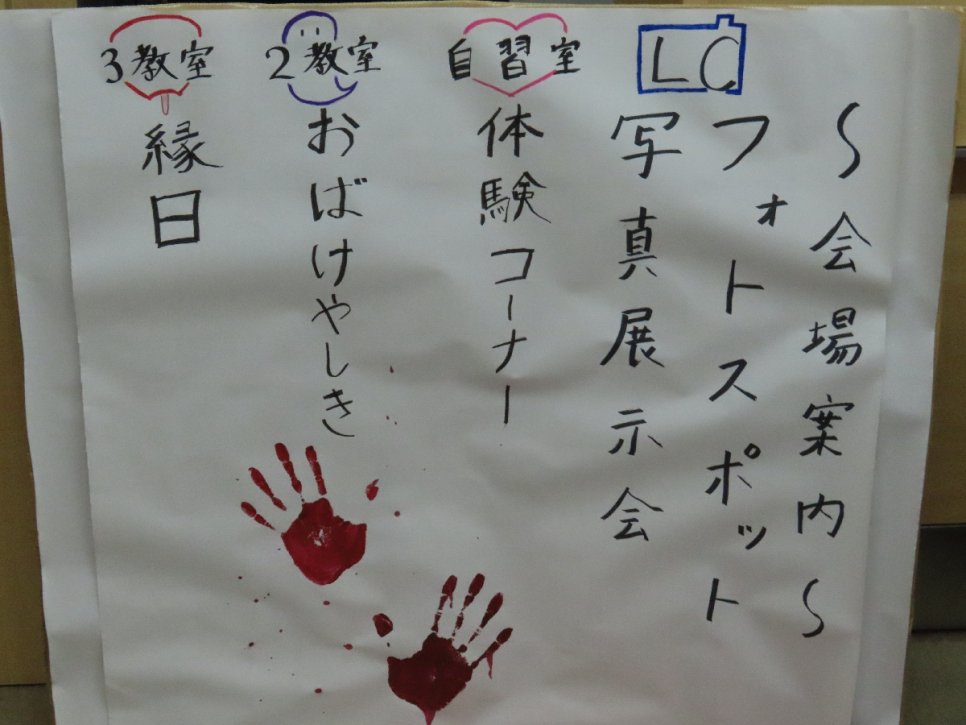 〜会場案内〜
LC
フォトスポット
写真展示会
自習室
体験コーナー
2教室
おばけやしき
3教室
縁日